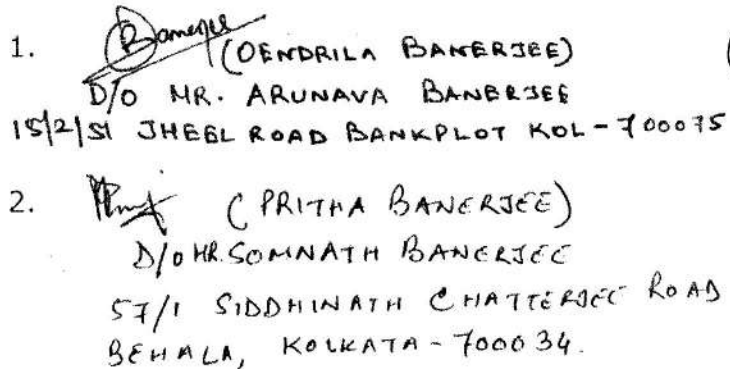 1. Banerjee (OENDRILA BANERJEE)
D/O MR. ARUNAVA BANERJEE
15/2/51 JHEEL ROAD BANKPLOT KOL-700075
2. (PRITHA BANERJEE)
D/O MR. SOMNATH BANERJEE
57/1 SIDDHINATH CHATTERJEE ROAD
BEHALA, KOLKATA-700034.